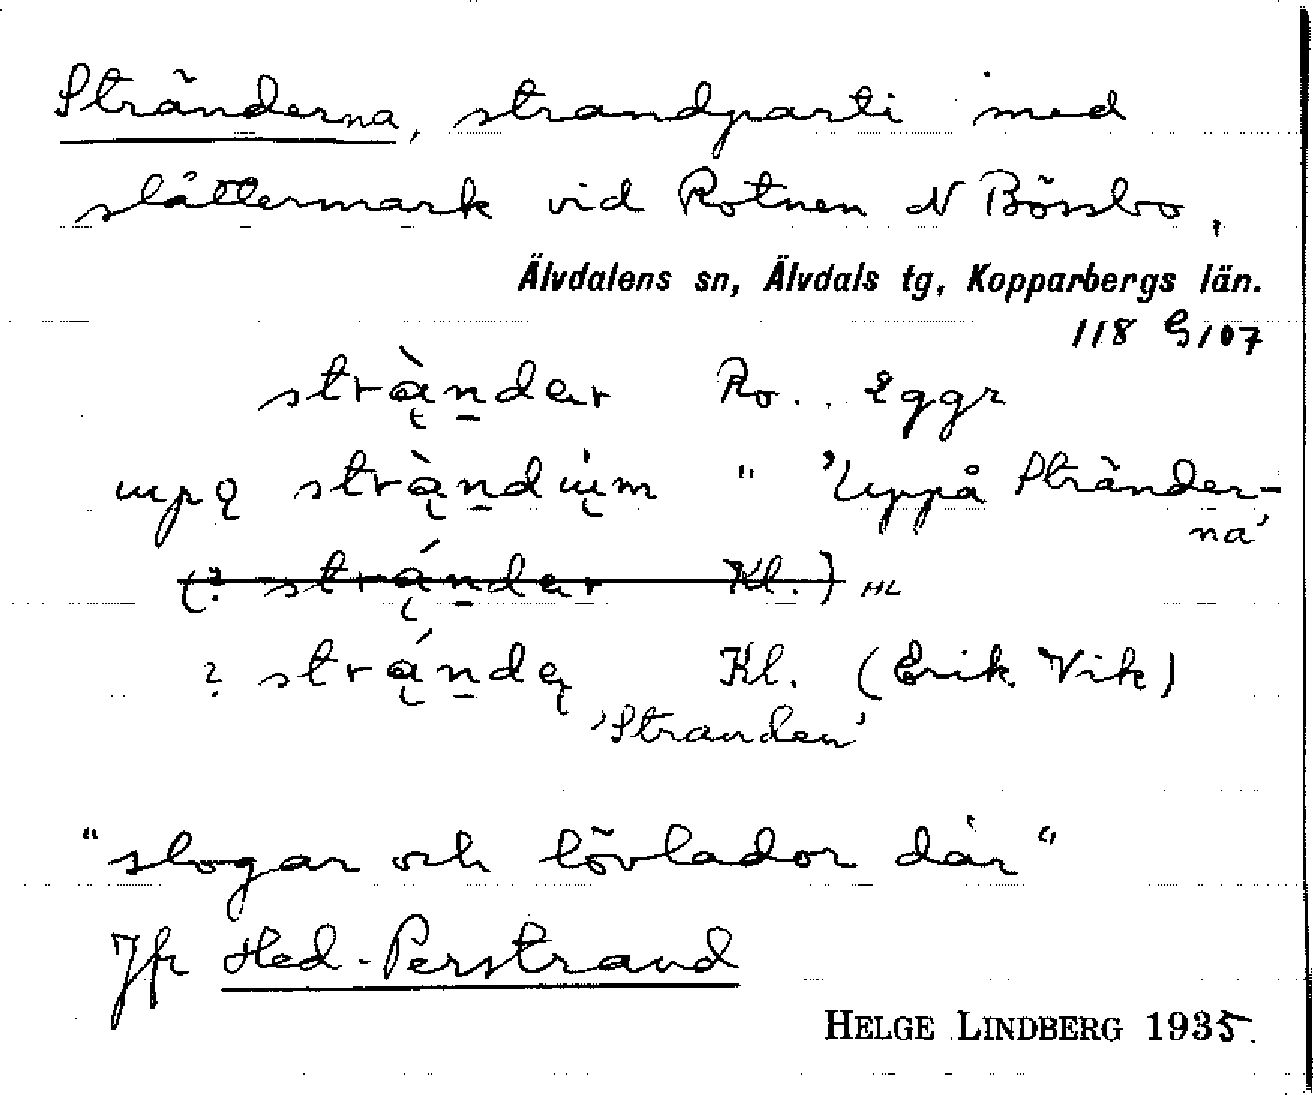 Stränderna, strandparti med
slåttermark vid Rotnen N Bössbo,
Älvdalens sn, Älvdals tg, Kopparbergs län.
118 G107
strą̀n̲dar Ro. Eggr
upo̜ strą̀n̲du̜m " 'Uppå Stränder-
na'
(? strą́n̲dar Kl.) HL
? strą́n̲dą Kl. (Erik Vik)
'Stranden'
"slogar och lövlador där"
Jfr Hed-Perstrand
HELGE LINDBERG 1935.